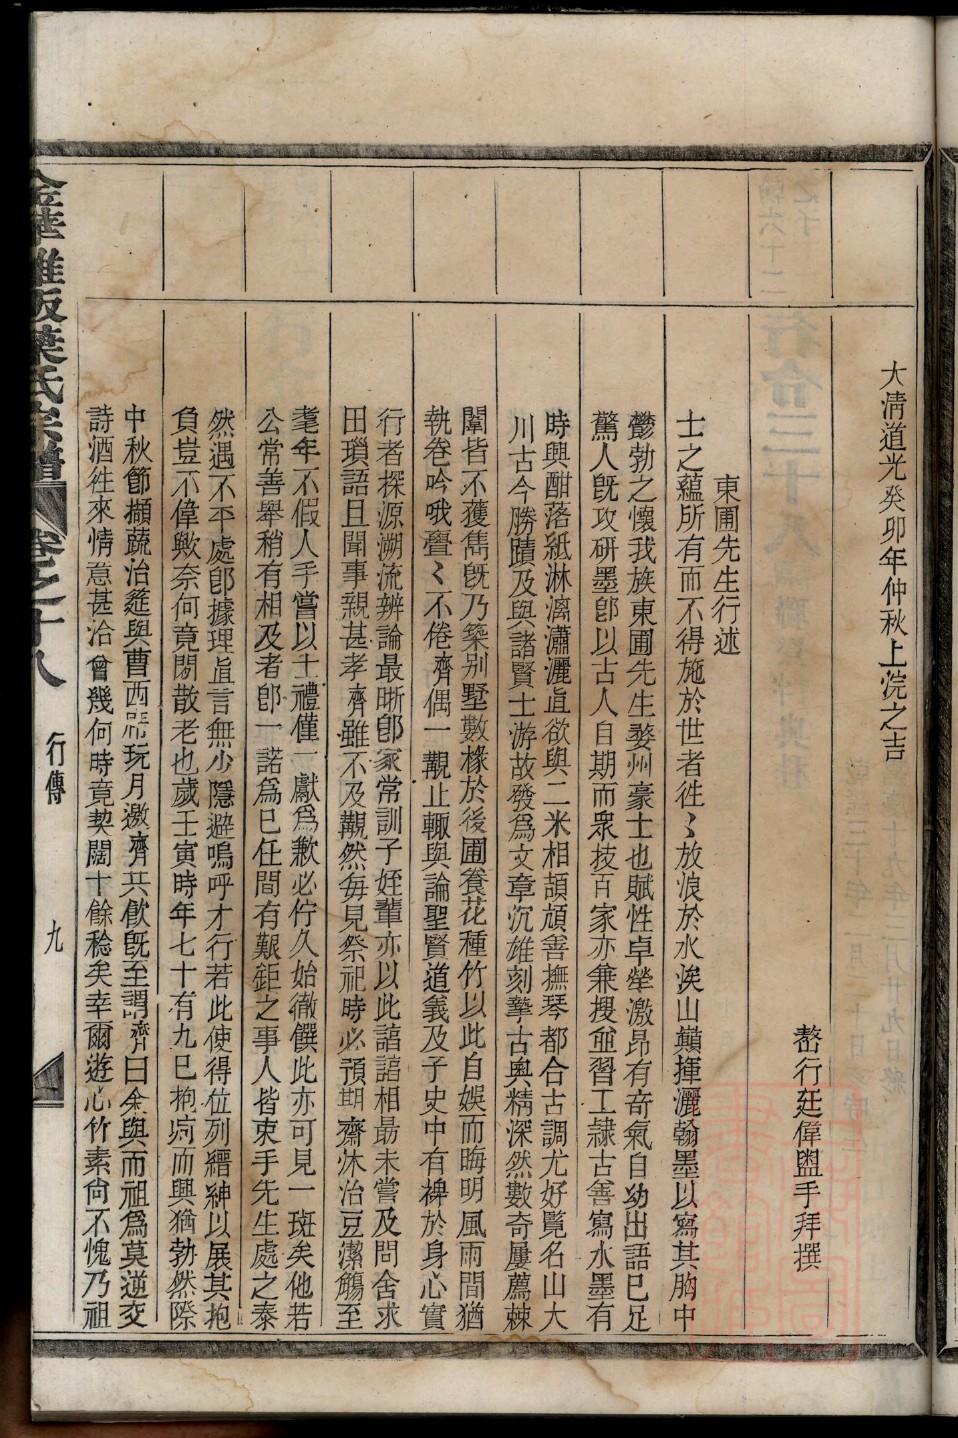 大淸道光癸卯年仲秋上浣之吉
嶅行廷偉盥手拜撰
東圃先生行述
士之蘊所有而不得施於世者徃〻放浪於水涘山巔揮灑翰墨以寫其胸中
鬱勃之懷我族東圃先生婺州豪士也賦性卓犖激昂有奇氣自幼出語巳足
驚人旣攻研墨卽以古人自期而衆技百家亦兼搜並習工隷古善寫水墨有
時興酣落紙淋漓瀟灑直欲與二米相頡頏善撫琴都合古調尤好覽名山大
川古今勝蹟及與諸賢士游故發爲文章沉雄刻摯古奥精深然數奇屢薦棘
闈皆不獲雋旣乃築别墅數椽於後圃養花種竹以此自娛而晦明風雨間猶
執卷吟哦亹〻不倦齊偶一覯止輙與論聖賢道義及子史中有裨於身心實
行者探源溯流辨論最晰卽家常訓子姪輩亦以此諳諳相朂未嘗及問舍求
田瑣語且聞事親甚孝齊雖不及覯然每見祭祀時必預期齋沐治豆潔觴至
耄年不假人手嘗以士禮僅一獻爲歉必佇久始徹饌此亦可見一斑矣他若
公常善舉稍有相及者卽一諾爲巳任間有艱鉅之事人皆束手先生處之泰
然遇不平處卽據理直言無少隱避嗚呼才行若此使得位列縉紳以展其抱
負豈不偉歟奈何竟閑散老也歲壬寅時年七十有九巳抱疴而興猶勃然際
中秋節擷蔬治筵與曹西㟁玩月邀齊共飮旣至謂齊曰余與而祖爲莫逆交
詩酒徃來情意甚洽曾幾何時竟契闊十餘稔矣幸爾遊心竹素尙不愧乃祖
金華雅畈葉氏宗譜
卷之十八
行傳
九